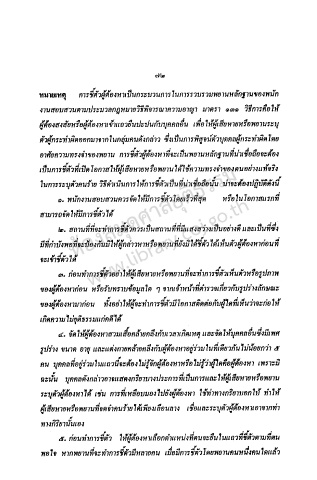 ๗๒
หมายเหตุ การชี้ตัวผู้ต้องหาเป็นกระบวนการในการรวบรวมพยานหลักฐานของพนัก
งานสอบสวนตามประมวลกฎหมายวิธีพิจารณาความอาญา มาตรา ๑๓๑ วิธีการคือให้
ผู้ต้องสงสัยหรือผู้ต้องหาเข้าแถวยืนปะปนกับบุคคลอื่น เพื่อให้ผู้เสียหายหรือพยานระบุ
ตัวผู้กระทำผิดออกมาจากในกลุ่มคนดังกล่าว ซึ่งเป็นการพิสูจน์ตัวบุคคลผู้กระทำผิดโดย
อาศัยความทรงจำของพยาน การชี้ตัวผู้ต้องหาที่จะเป็นพยานหลักฐานที่น่าเชื่อถือจะต้อง
เป็นการชี้ตัวที่เปิดโอกาสให้ผู้เสียหายหรือพยานได้ใช้ความทรงจำของตนอย่างแท้จริง
ในการระบุตัวคนร้าย วิธีดำเนินการให้การชี้ตัวเป็นที่น่าเชื่อถือนั้น น่าจะต้องปฏิบัติดังนี้
๑. พนักงานสอบสวนควรจัดให้มีการชี้ตัวโดยเร็วที่สุด หรือในโอกาสแรกที่
สามารถจัดให้มีการชี้ตัวได้
๒. สถานที่ที่จะทำการชี้ตัวควรเป็นสถานที่ที่มีแสงสว่างเป็นอย่างดี และเป็นที่ซึ่ง
มีที่กำบังพอที่จะป้องกันมิให้ผู้กล่าวหาหรือพยานที่ยังมิได้ชี้ตัวได้เห็นตัวผู้ต้องหาก่อนที่
จะเข้าชี้ตัวได้
๓. ก่อนทำการชี้ตัวอย่าให้ผู้เสียหายหรือพยานที่จะทำการชี้ตัวเห็นตัวหรือรูปภาพ
ของผู้ต้องหาก่อน หรือรับทราบข้อมูลใด ๆ จากเจ้าหน้าที่ตำรวจเกี่ยวกับรูปร่างลักษณะ
ของผู้ต้องหามาก่อน ทั้งอย่าให้ผู้จะทำการชี้ตัวมีโอกาสติดต่อกับผู้ใดที่เห็นว่าจะก่อให้
เกิดความไม่ยุติธรรมแก่คดีได้
๔. จัดให้ผู้ต้องหาสวมเสื้อคล้ายคลึงกับเวลาเกิดเหตุ และจัดให้บุคคลอื่นซึ่งมีเพศ
รูปร่าง ขนาด อายุ และแต่งกายคล้ายคลึงกับผู้ต้องหาอยู่ร่วมในที่เดียวกันไม่น้อยกว่า ๕
คน บุคคลที่อยู่ร่วมในแถวนี้จะต้องไม่รู้จักผู้ต้องหาหรือไม่รู้ว่าผู้ใดคือผู้ต้องหา เพราะมิ
ฉะนั้น บุคคลดังกล่าวอาจแสดงกริยาบางประการที่เป็นการแนะให้ผู้เสียหายหรือพยาน
ระบุตัวผู้ต้องหาได้ เช่น การที่เหลือบมองไปยังผู้ต้องหา ใช้ท่าทางกริยาบอกใบ้ ทำให้
ผู้เสียหายหรือพยานที่จดจำคนร้ายได้เพียงเลือนลาง เชื่อและระบุตัวผู้ต้องหาเอาจากท่า
ทางกิริยานั้นเอง
๕. ก่อนทำการชี้ตัว ให้ผู้ต้องหาเลือกตำแหน่งที่ตนจะยืนในแถวที่ชี้ตัวตามที่ตน
พอใจ หากพยานที่จะทำการชี้ตัวมีหลายคน เมื่อมีการชี้ตัวโดยพยานคนหนึ่งคนใดแล้ว